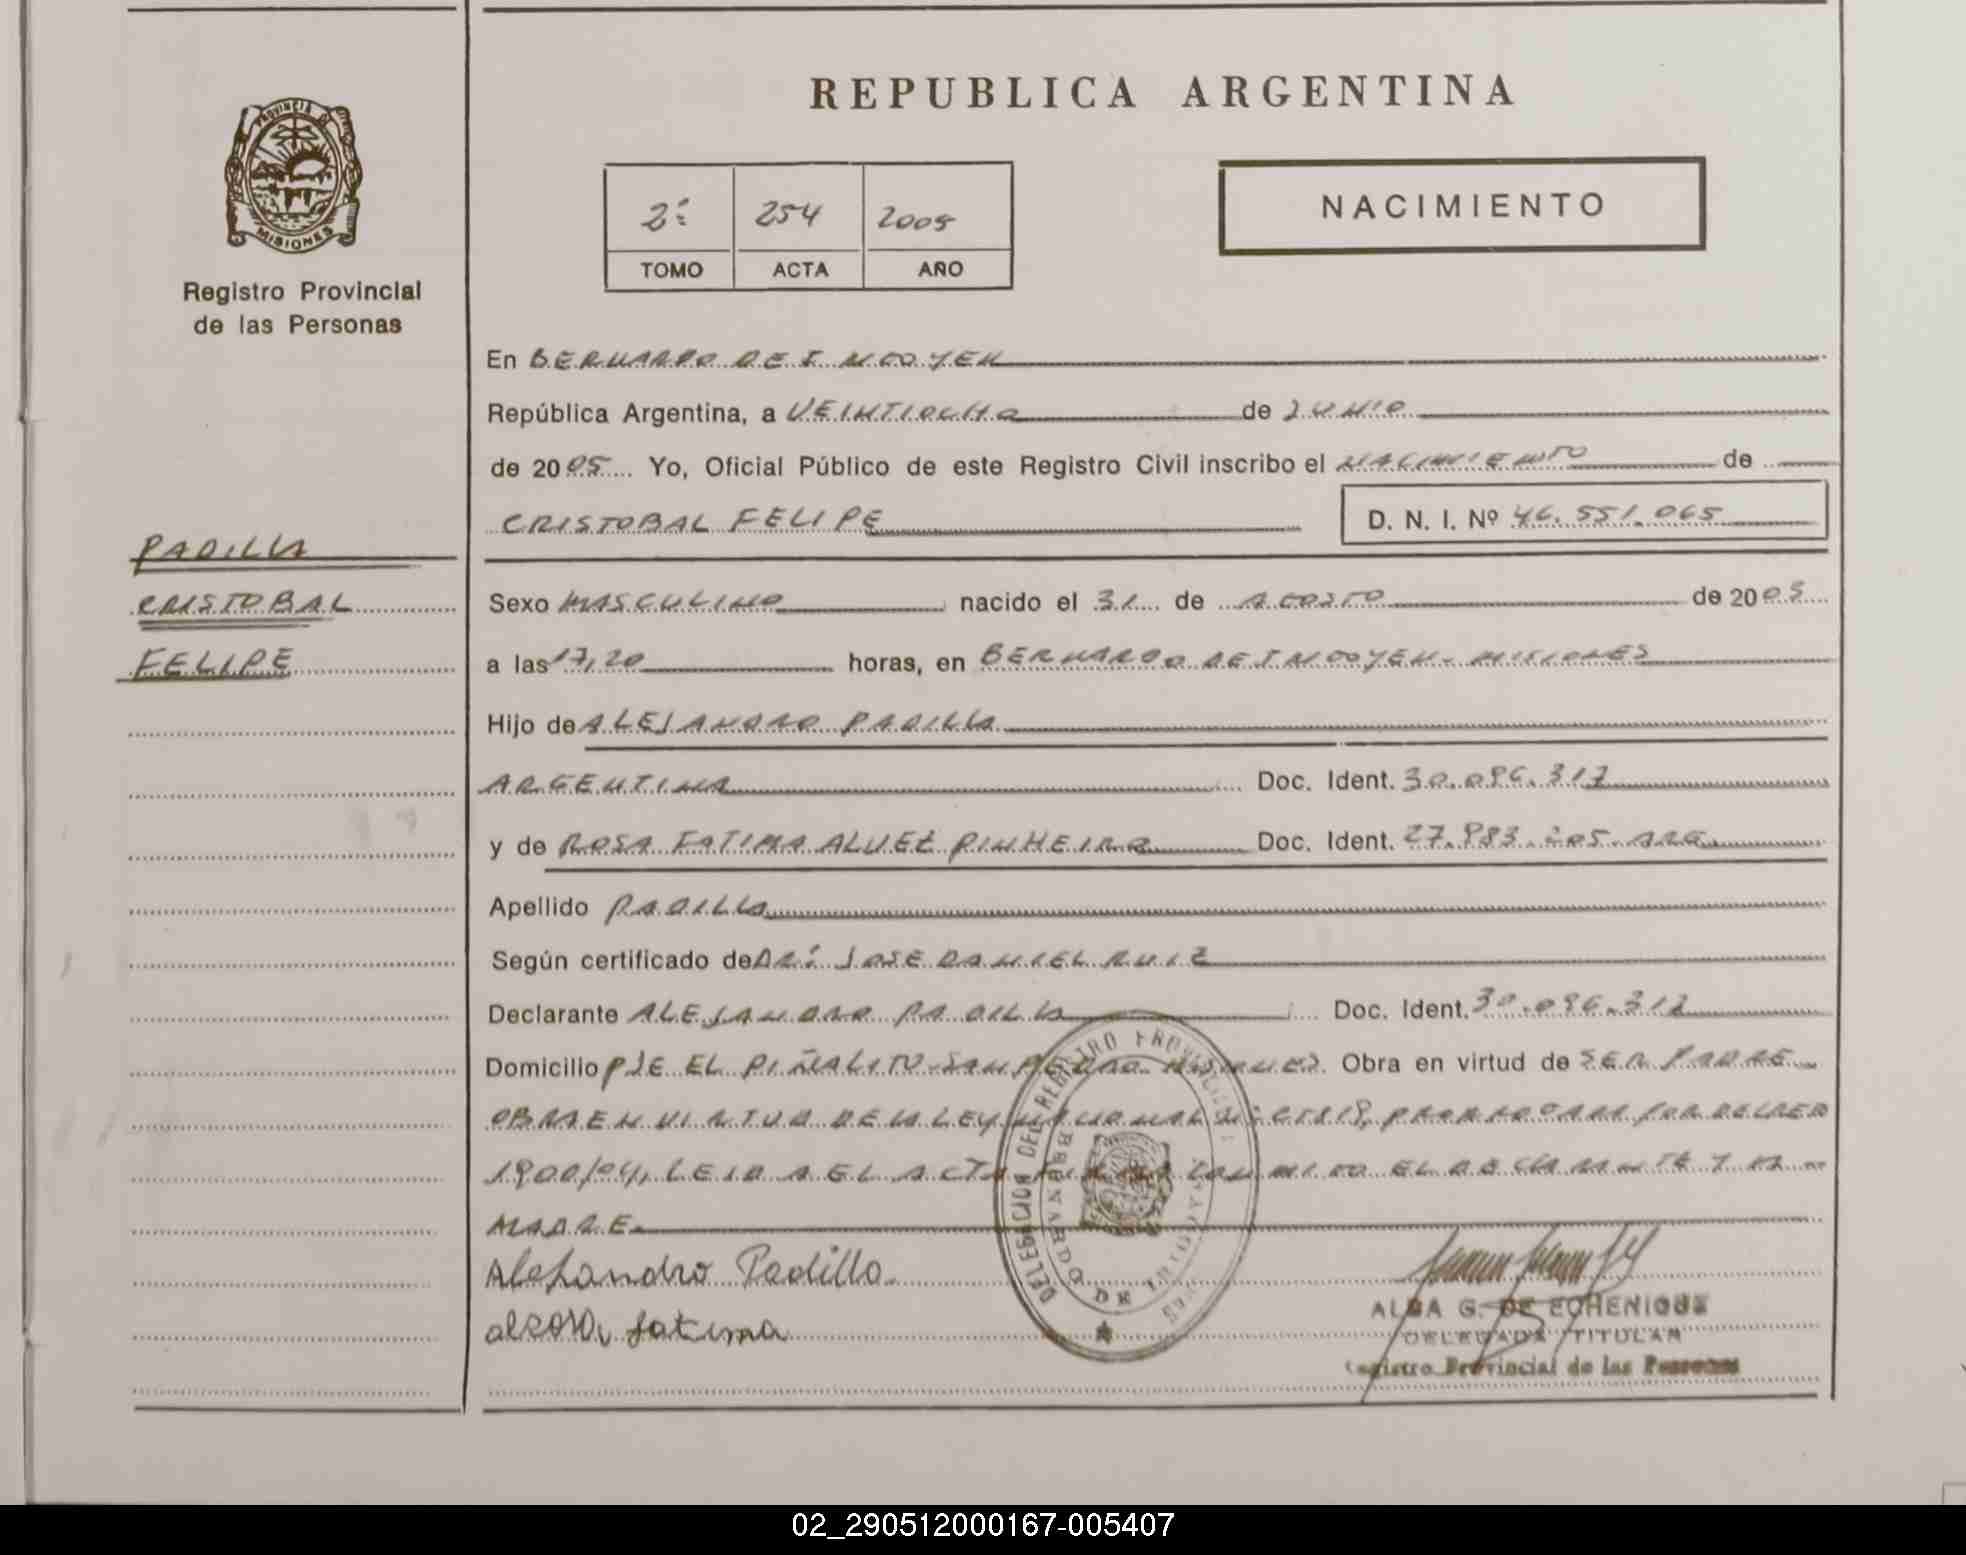 REPUBLICA ARGENTINA
PROVINCIA DE
MISIONES
Registro Provincial
de las Personas
2º 254 2005
TOMO ACTA AÑO
NACIMIENTO
En BERNARDO DE IRIGOYEN
República Argentina, a VEINTIOCHO de JUNIO
de 2005 Yo, Oficial Público de este Registro Civil inscribo el NACIMIENTO de
CRISTOBAL FELIPE D. N. I. Nº 46.551.065
PADILLA
CRISTOBAL
FELIPE
Sexo MASCULINO nacido el 31 de AGOSTO de 2003
a las 17,20 horas, en BERNARDO DE IRIGOYEN - MISIONES
Hijo de ALEJANDRO PADILLA
ARGENTINA Doc. Ident. 30.096.317
y de ROSA FATIMA ALVEZ PINHEIRO Doc. Ident. 27.983.205 ARG
Apellido PADILLA
Según certificado de DR: JOSE DANIEL RUIZ
Declarante ALEJANDRO PADILLA Doc. Ident. 30.096.317
Domicilio PJE EL PIÑALITO - SAN PEDRO MISIONES. Obra en virtud de SER PADRE
OBRA EN VIRTUD DE LA LEY NACIONAL PRORROGADA POR DECRETO
1900/04, LEIDA EL ACTA FIRMA CONMIGO EL DECLARANTE Y LA
MADRE.
Alejandro Padilla
fatima
DELEGACION DEL REGISTRO PROVINCIAL
BERNARDO DE IRIGOYEN
ALBA G. DE ECHENIQUE
DELEGADA TITULAR
Registro Provincial de las Personas
02_290512000167-005407